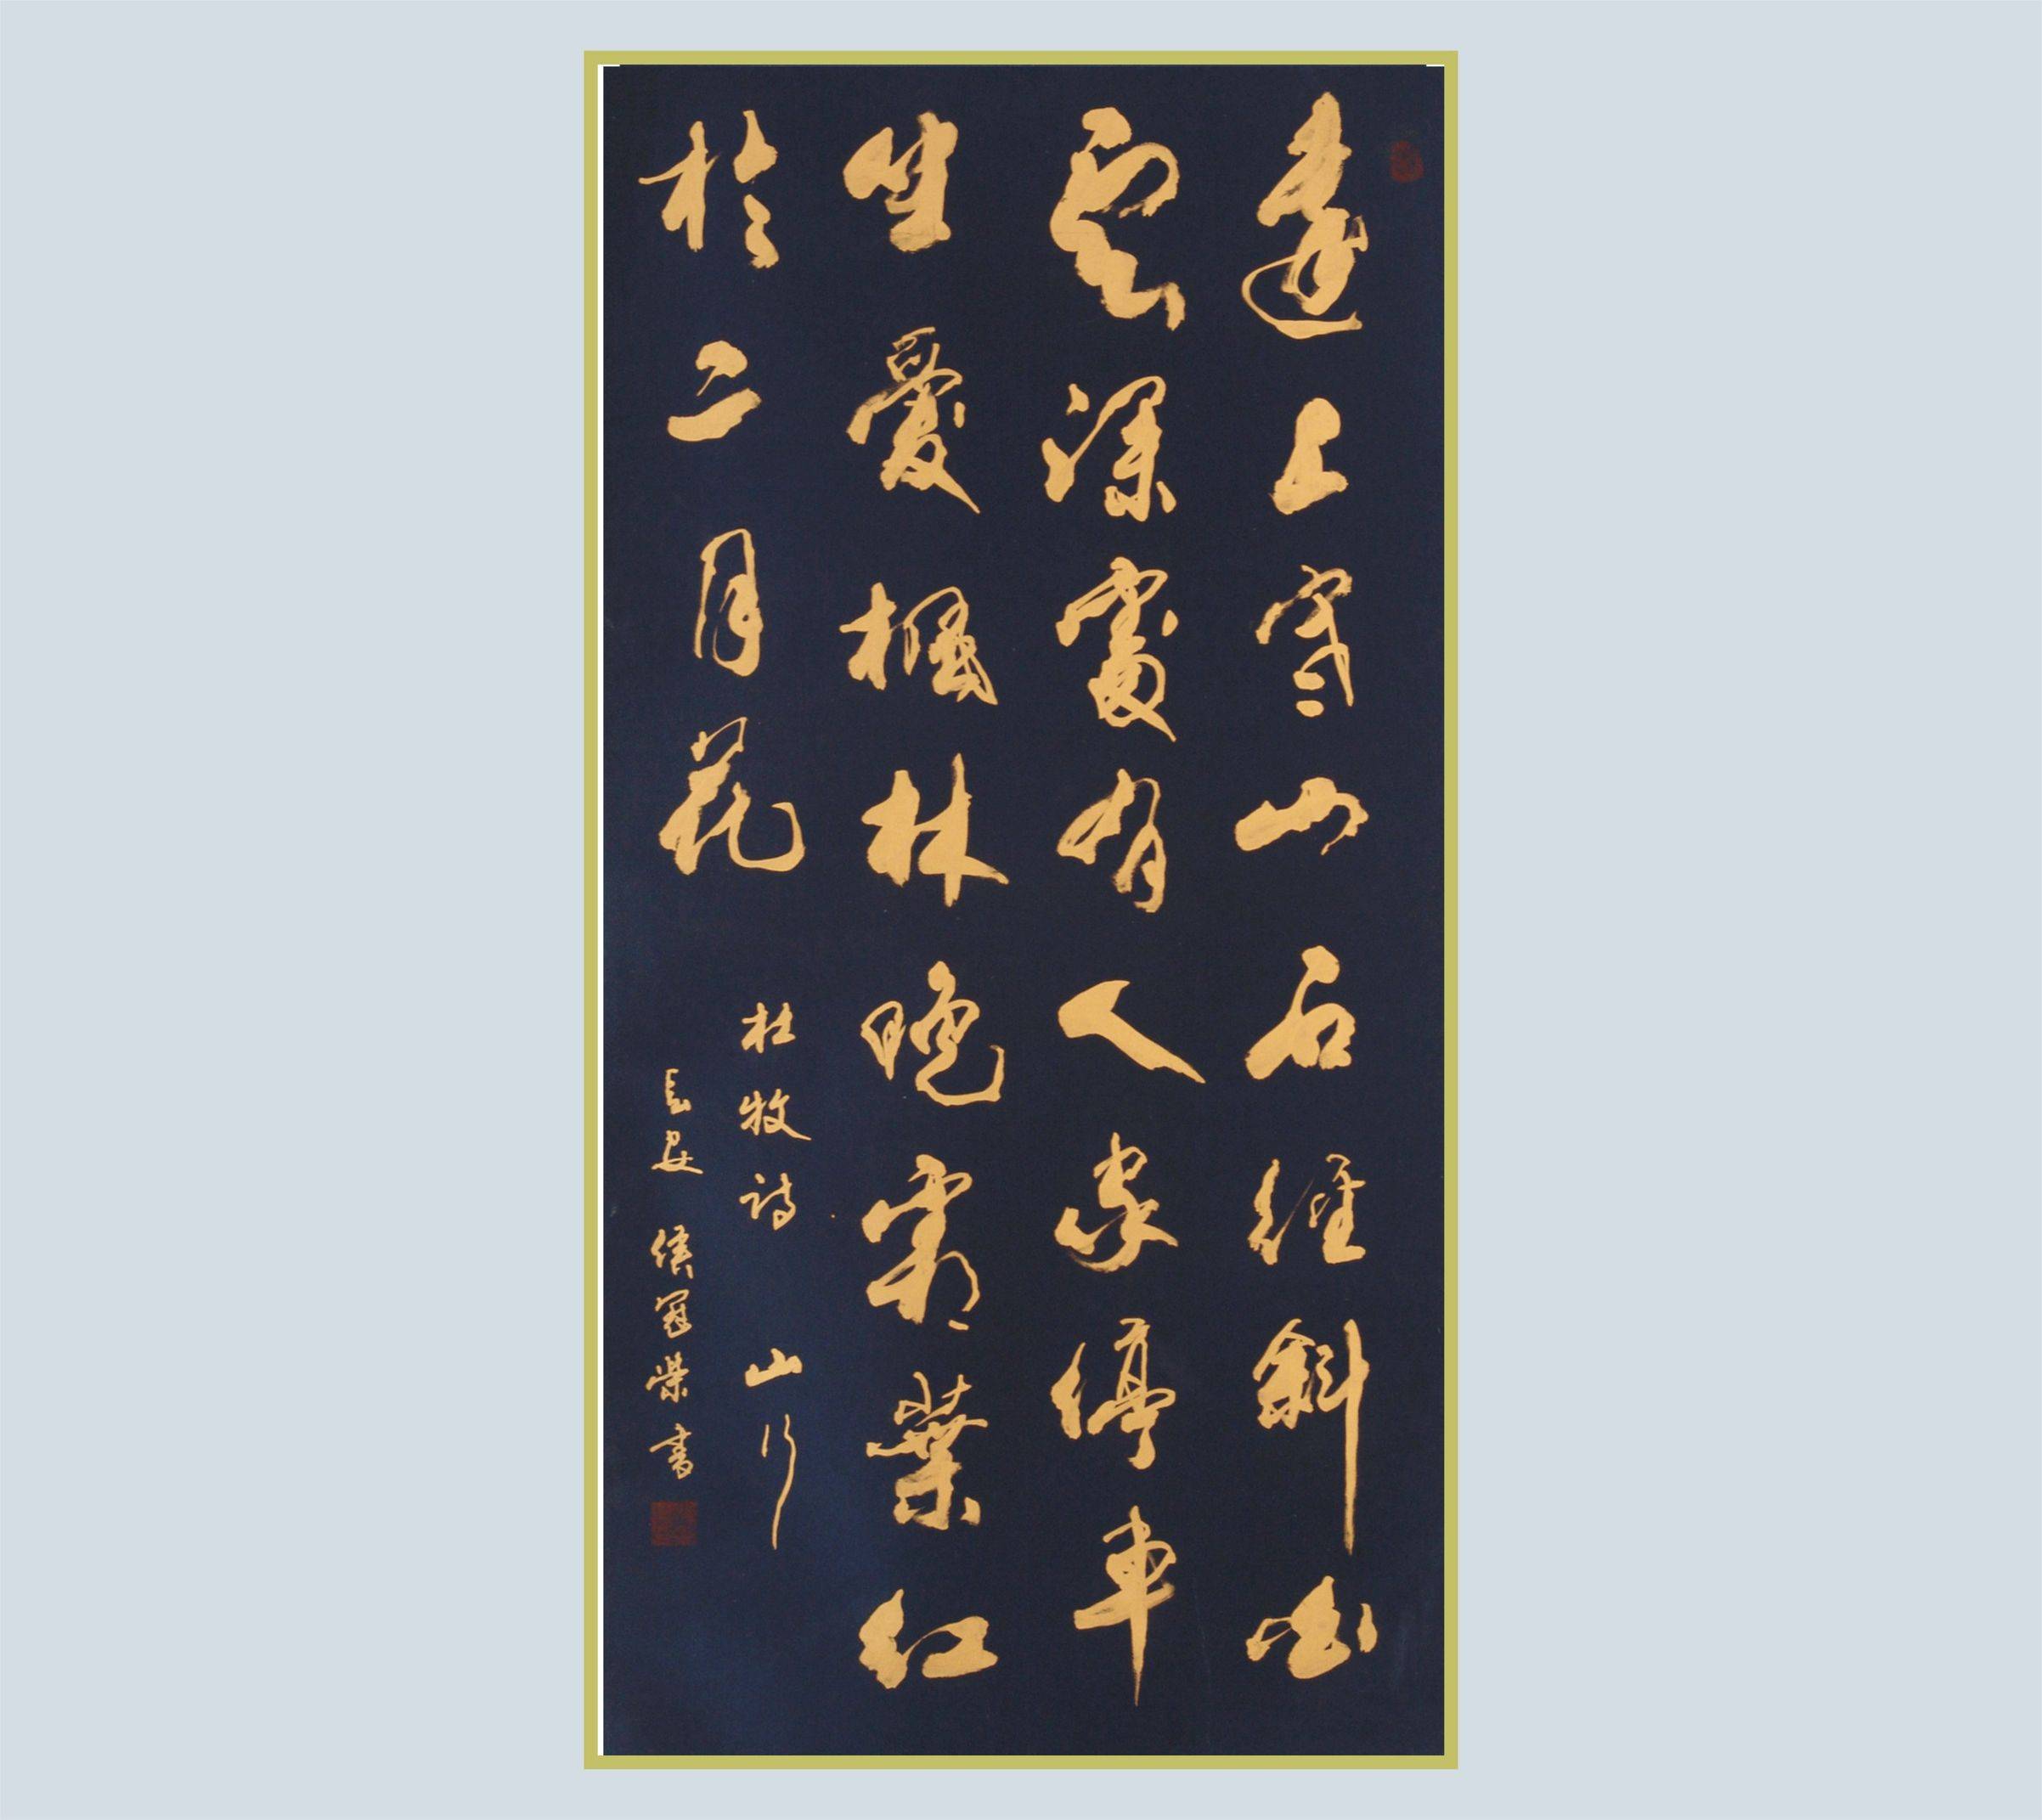 遠上寒山石徑斜白
雲深處有人家停車
坐愛楓林晚霜葉紅
於二月花
杜牧詩 山行
長安 侯冠榮書